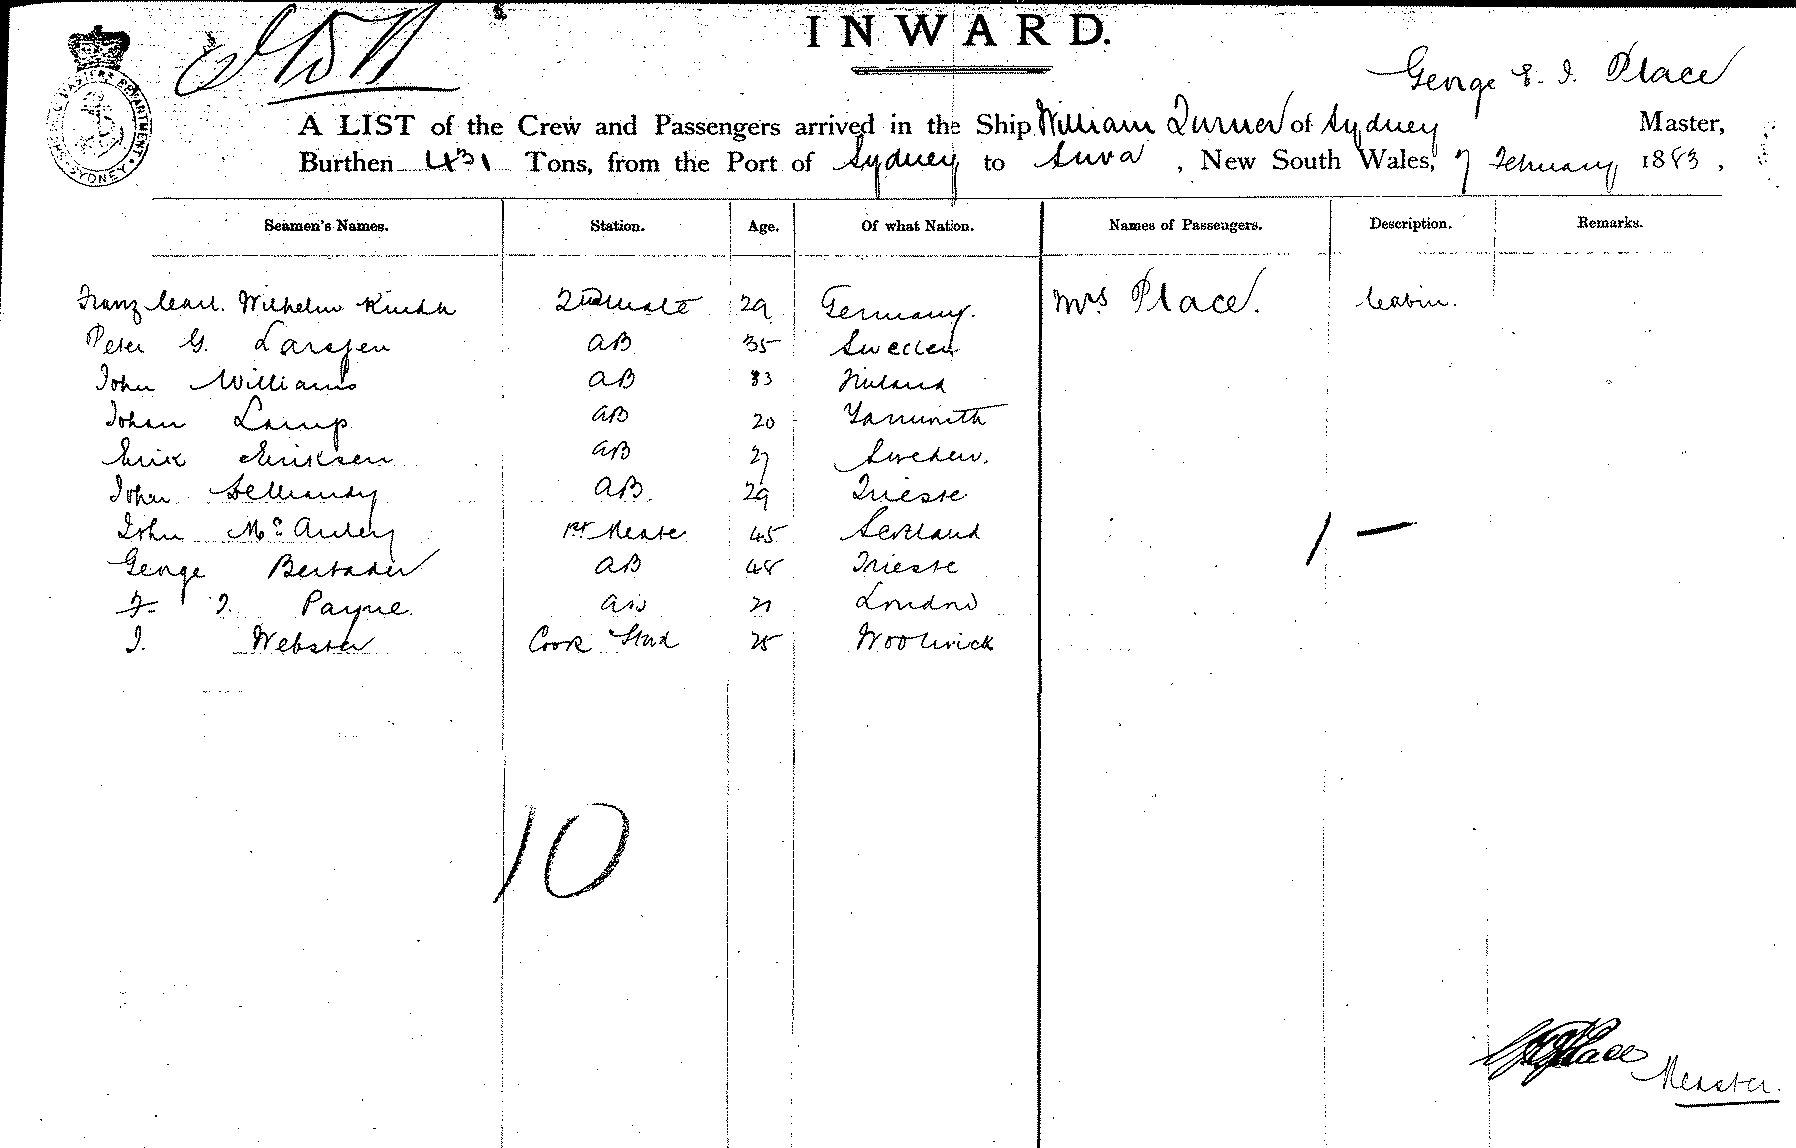 INWARD.
George E. J. Place
A LIST of the Crew and Passengers arrived in the Ship William Turner of Sydney Master,
Burthen 431 Tons, from the Port of Sydney to Suva, New South Wales, 7 February 1883,
Seamen's Names. Station. Age. Of what Nation. Names of Passengers. Description. Remarks.
Franz Carl. Wilhelm 2nd Mate 29 Germany. Mrs Place. Cabin.
Peter G. Larssen AB 35 Sweden
John Williams AB 33 Finland
Johan Lamp AB 20 Yarmouth
Erik Eriksen AB 27 Sweden.
John AB 29 Trieste
John McAuley 1st Mate 45 Scotland
George AB 48 Trieste
F J. Payne AB 21 London
J. Webster Cook Stwd 25 Woolwich
1 —
10
Place
Master.